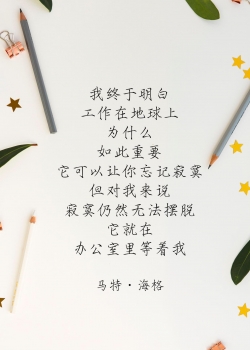 我终于明白
工作在地球上
为什么
如此重要
它可以让你忘记寂寞
但对我来说
寂寞仍然无法摆脱
它就在
办公室里等着我
马特·海格